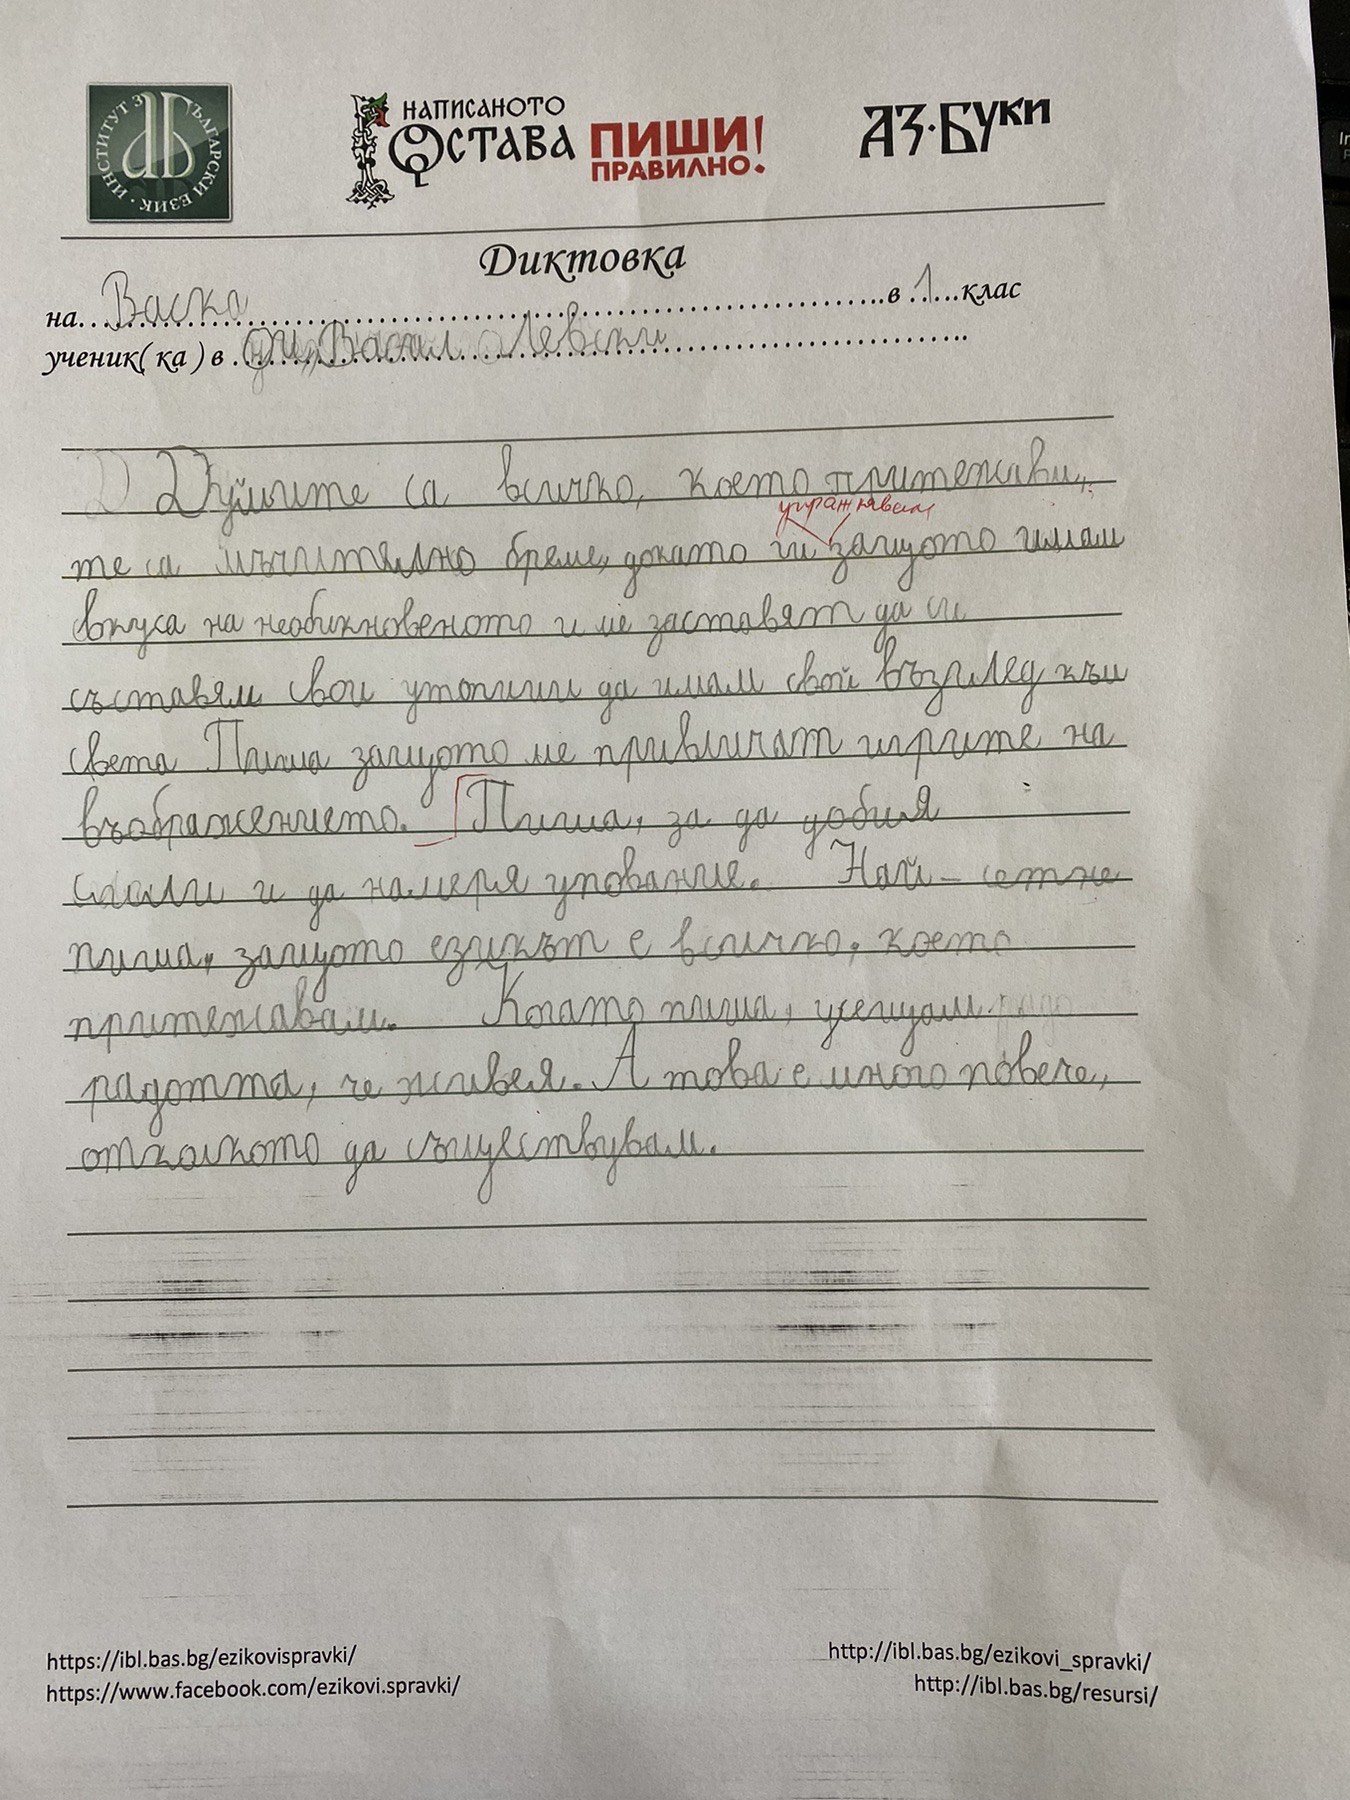 ИНСТИТУТ ЗА БЪЛГАРСКИ ЕЗИК
НАПИСАНОТО
ОСТАВА
ПИШИ
ПРАВИЛНО!
АЗ·БУКИ
Диктовка
на Васка в 1 клас
ученик( ка ) в Васил Левски
Думите са всичко, което притежави,
упражнявам
те са мъчително бреме, докато ги защото имам
вкуса на необикновеното и ме заставят да си
съставям свои утопиии да имам свой възглед към
света Пиша защото ме привличат игрите на
въображението. Пиша, за да добия
сили и да намеря упование. Най-сетне
пиша, защото езикът е всичко, което
притежавам. Когато пиша, усещам радо
радотта, че живея. А това е много повече,
отколкото да съществувам.
https://ibl.bas.bg/ezikovispravki/
http://ibl.bas.bg/ezikovi_spravki/
https://www.facebook.com/ezikovi.spravki/
http://ibl.bas.bg/resursi/